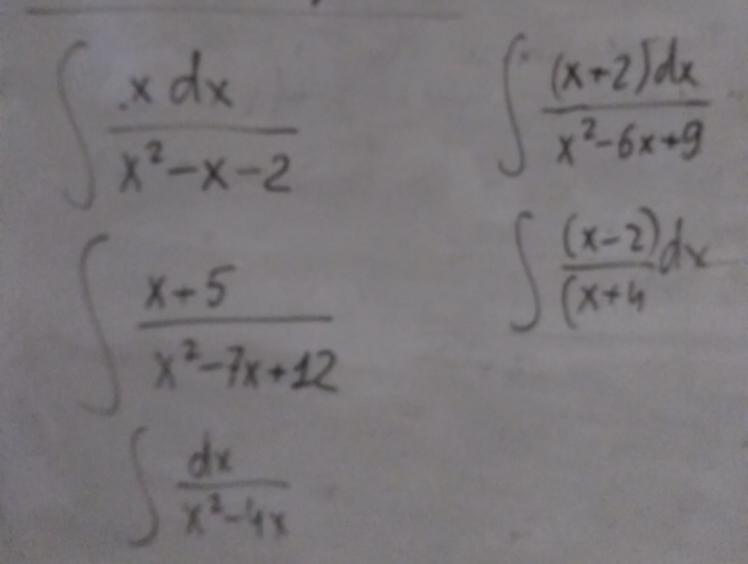 ∫ x dx / (x² - x - 2)
∫ x+5 / (x² - 7x + 12)
∫ dx / (x² - 4x)
∫ (x+2)dx / (x² - 6x + 9)
∫ (x-2) / (x+4 dx